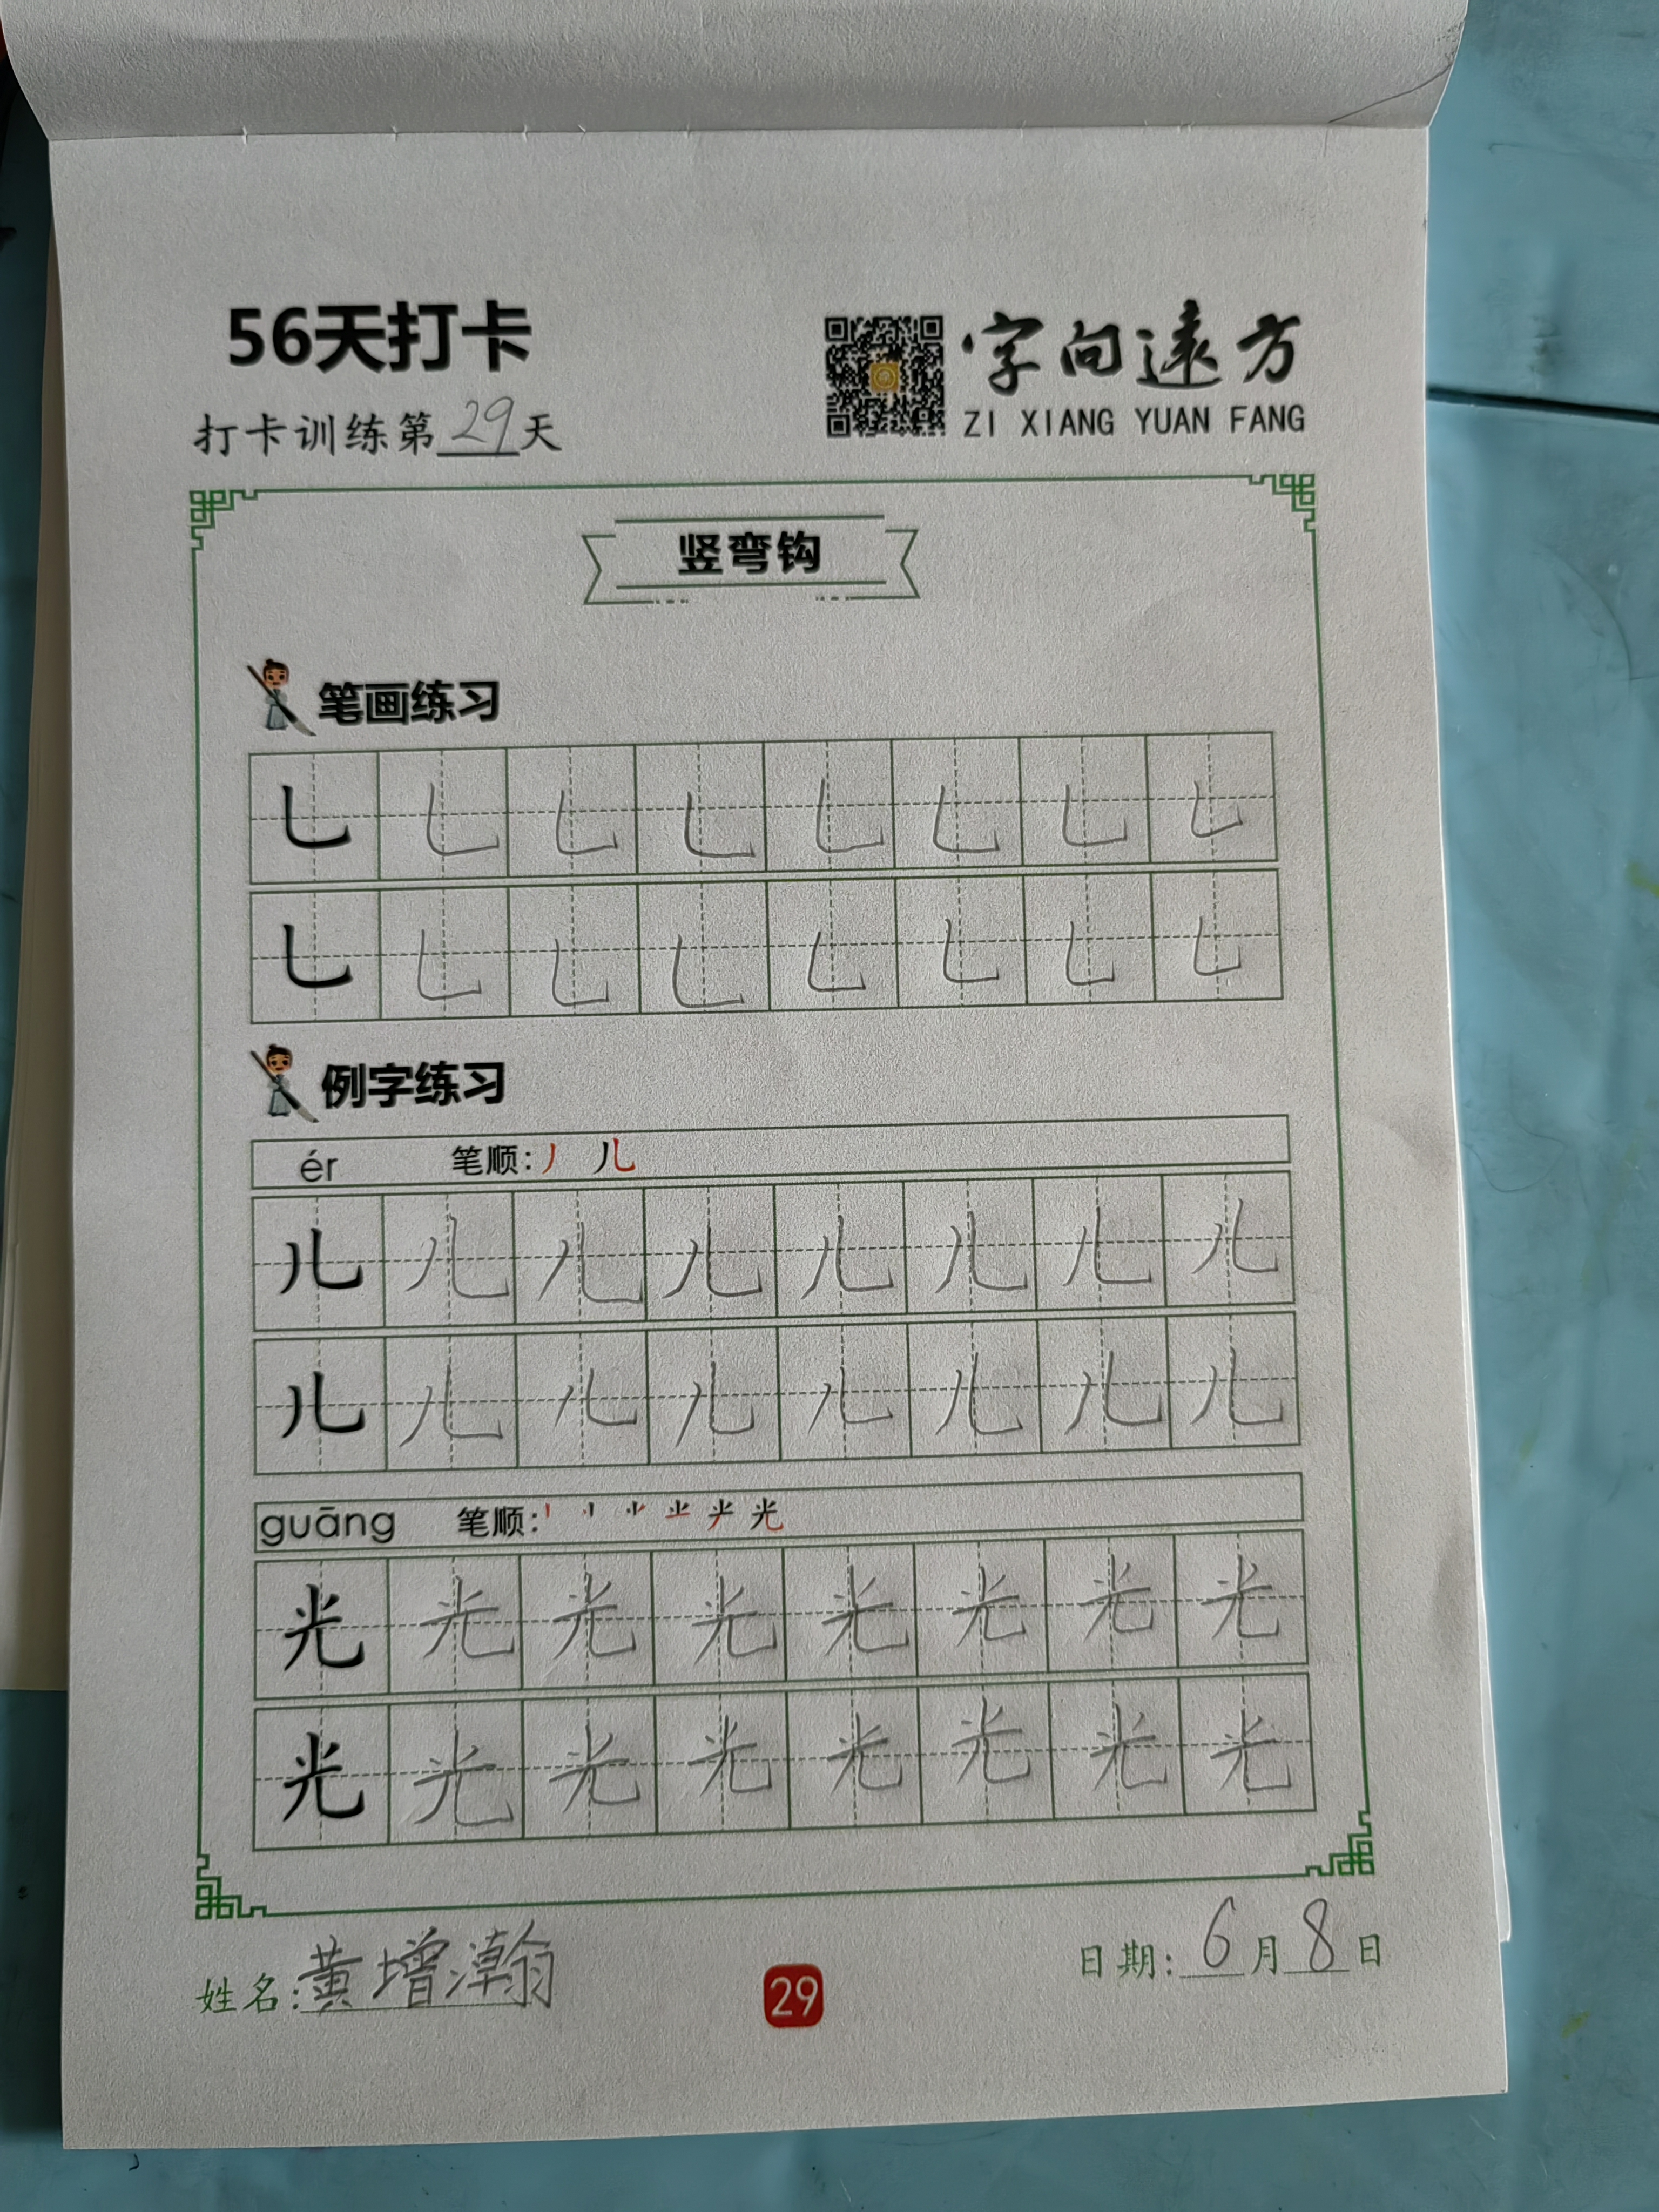 56天打卡
字向遠方
打卡训练第29天
ZI XIANG YUAN FANG
竖弯钩
笔画练习
乚 乚 乚 乚 乚 乚 乚 乚
乚 乚 乚 乚 乚 乚 乚 乚
例字练习
ér 笔顺: 丿 儿
儿 儿 儿 儿 儿 儿 儿 儿
儿 儿 儿 儿 儿 儿 儿 儿
guāng 笔顺: 光
光 光 光 光 光 光 光 光
光 光 光 光 光 光 光 光
姓名:黄增瀚
29
日期:6月8日